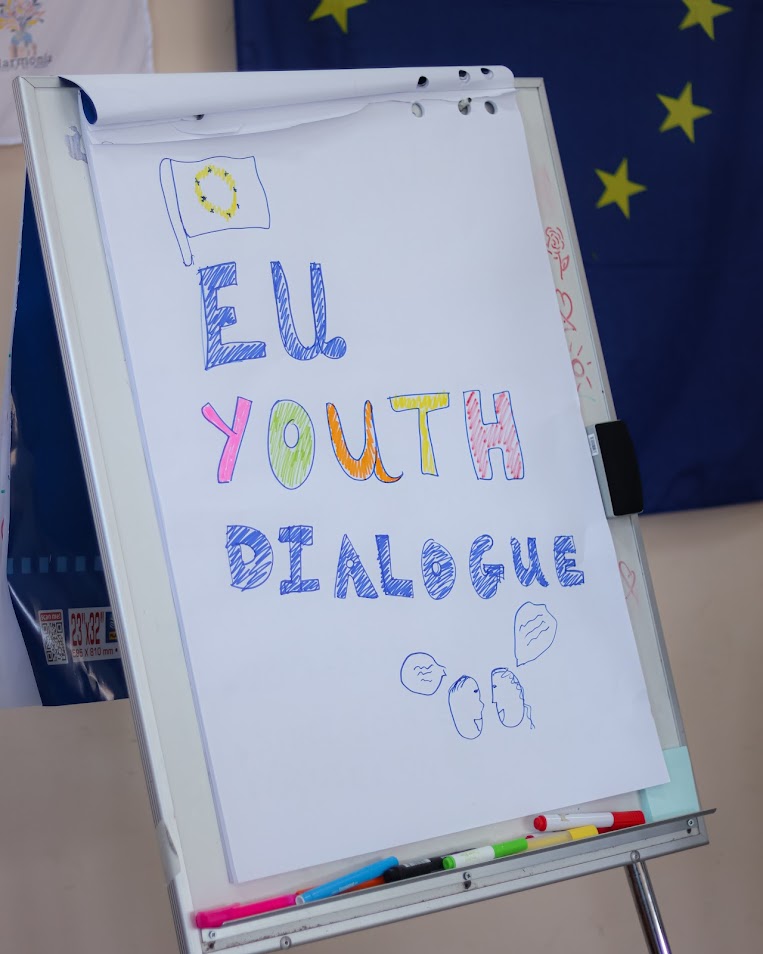 Harmonia
EU
YOUTH
DIALOGUE
23"x32"
585 X 810 mm